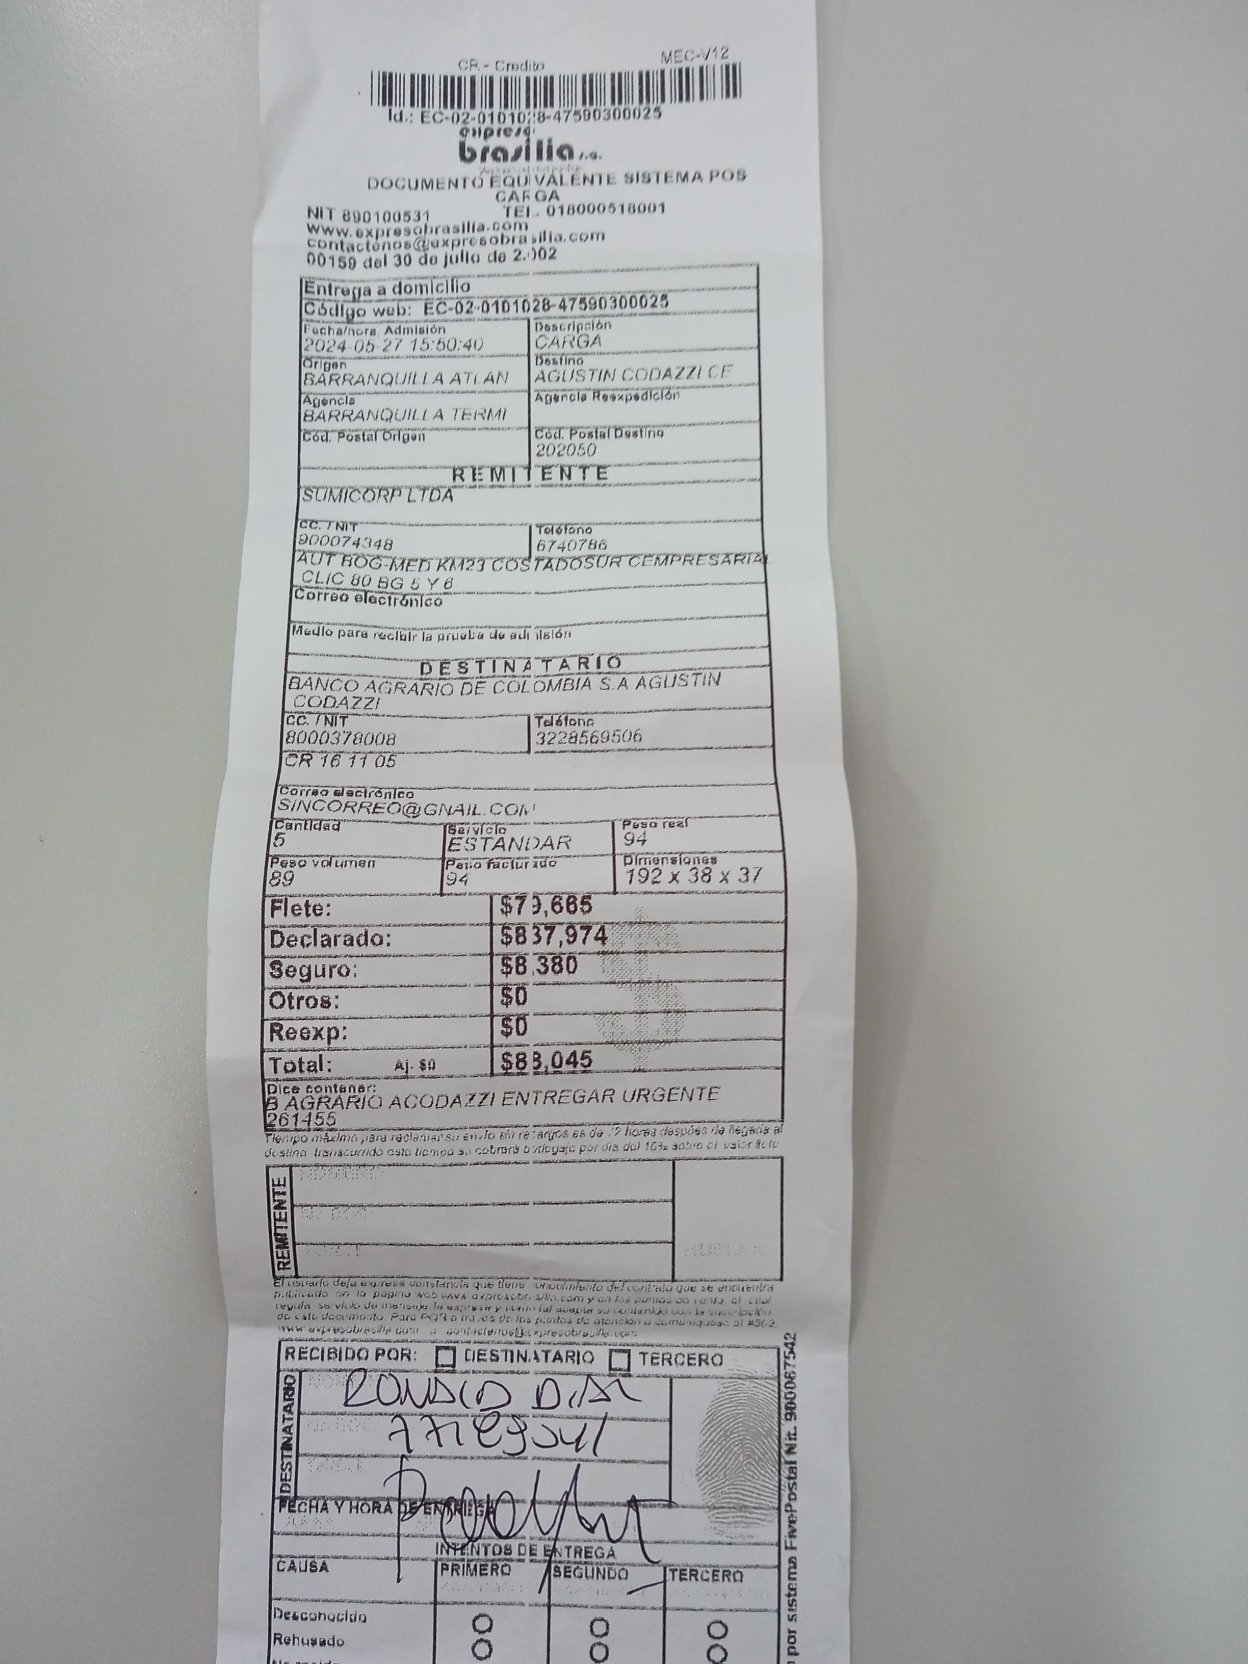 CR - Credito MEC-V12
Id.: EC-02-0101028-47590300025
expreso
brasilia s.a.
DOCUMENTO EQUIVALENTE SISTEMA POS
CARGA
NIT 890100531 TEL. 018000518001
www.expresobrasilia.com
contactenos@expresobrasilia.com
00159 del 30 de julio de 2.002
Entrega a domicilio
Código web: EC-02-0101028-47590300025
Fecha/hora Admisión Descripción
2024-05-27 15:50:40 CARGA
Origen Destino
BARRANQUILLA ATLAN AGUSTIN CODAZZI CE
Agencia Agencia Reexpedición
BARRANQUILLA TERMI
Cód. Postal Origen Cód. Postal Destino
202050
REMITENTE
SUMICORP LTDA
CC. / NIT Teléfono
900074348 6740786
AUT BOG-MED KM23 COSTADOSUR CEMPRESARIAL
CLIC 80 BG 5 Y 6
Correo electrónico
Medio para recibir la prueba de admisión
DESTINATARIO
BANCO AGRARIO DE COLOMBIA S.A AGUSTIN
CODAZZI
CC. / NIT Teléfono
8000378008 3228569506
CR 16 11 05
Correo electrónico
SINCORREO@GNAIL.COM
Cantidad Servicio Peso real
5 ESTANDAR 94
Peso volumen Peso facturado Dimensiones
89 94 192 x 38 x 37
Flete: $79,665
Declarado: $837,974
Seguro: $8,380
Otros: $0
Reexp: $0
Total: Aj. $0 $88,045
Dice contener:
B AGRARIO ACODAZZI ENTREGAR URGENTE
261455
Tiempo máximo para reclamar su envío sin recargos es de 72 horas después de llegada al
destino, transcurrido este tiempo se cobrará bodegaje por día del 10% sobre el valor flete
REMITENTE
El usuario deja expresa constancia que tiene conocimiento del contrato que se encuentra
publicado en la página web www.expresobrasilia.com y en los puntos de venta, el cual
regula servicio de mensajería expresa y
de este documento. Para PQR a través de los puntos de atención o comuníquese al #502,
www.expresobrasilia.com o contactenos@expresobrasilia.com
RECIBIDO POR: DESTINATARIO TERCERO
DESTINATARIO
RONALD DIAZ
FECHA Y HORA DE ENTREGA
INTENTOS DE ENTREGA
CAUSA PRIMERO SEGUNDO TERCERO
Desconocido
Rehusado
por sistema FivePostal Nit. 900067542